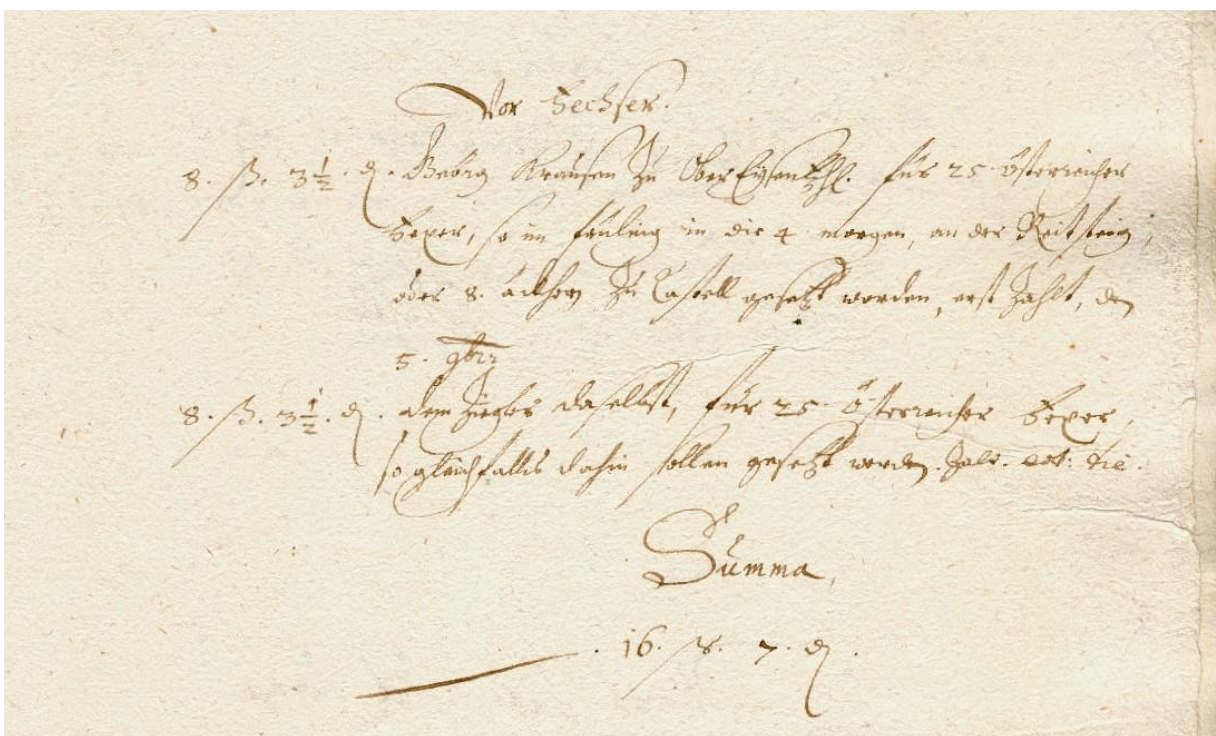 Vor Fechser.
8. ß. 3½. ₰. Georg Krausen zu Obereysenßh. für 25 Österreicher
Fexer, so im früling in die 4 morgen, an der Reitsteig,
oder 8. ackher zu Castell gesetzt worden, erst zahlt, den
5. 9br:
8. ß. 3½. ₰. dem Ziegler daselbst, für 25 Österreicher Fexer,
so gleichfalls dahin sollen gesetzt werden. zalt. eod: die.
Summa,
16. ß. 7. ₰.